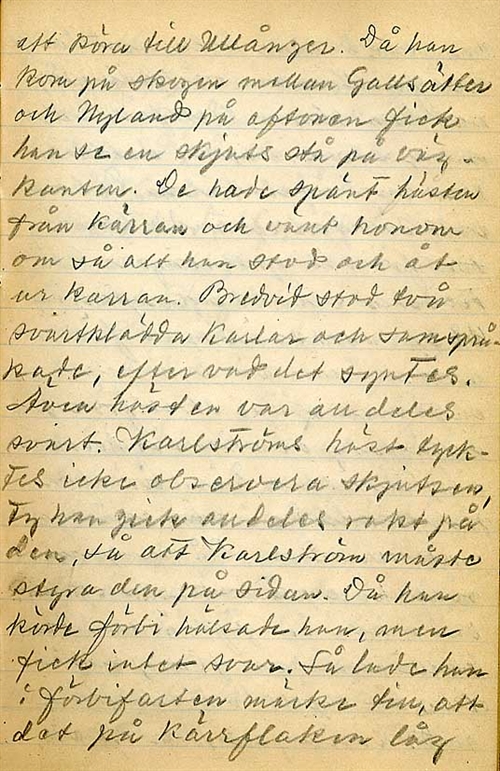 att köra till Ullånger. Då han
kom på skogen mellan Gallsätter
och Nyland på aftonen fick
han se en skjuts stå på väg-
kanten. De hade spänt hästen
från kärran och vänt honom
om så att han stod och åt
ur kärran. Bredvid stod två
svartklädda karlar och samsprå-
kade, efter vad det syntes.
Även hästen var alldeles
svart. Karlströms häst tyck-
tes icke observera skjutsen,
ty han gick alldeles rakt på
den, så att Karlström måste
styra den på sidan. Då han
körde förbi hälsade han, men
fick intet svar. Så lade han
i förbifarten märke till, att
det på kärrflaken låg